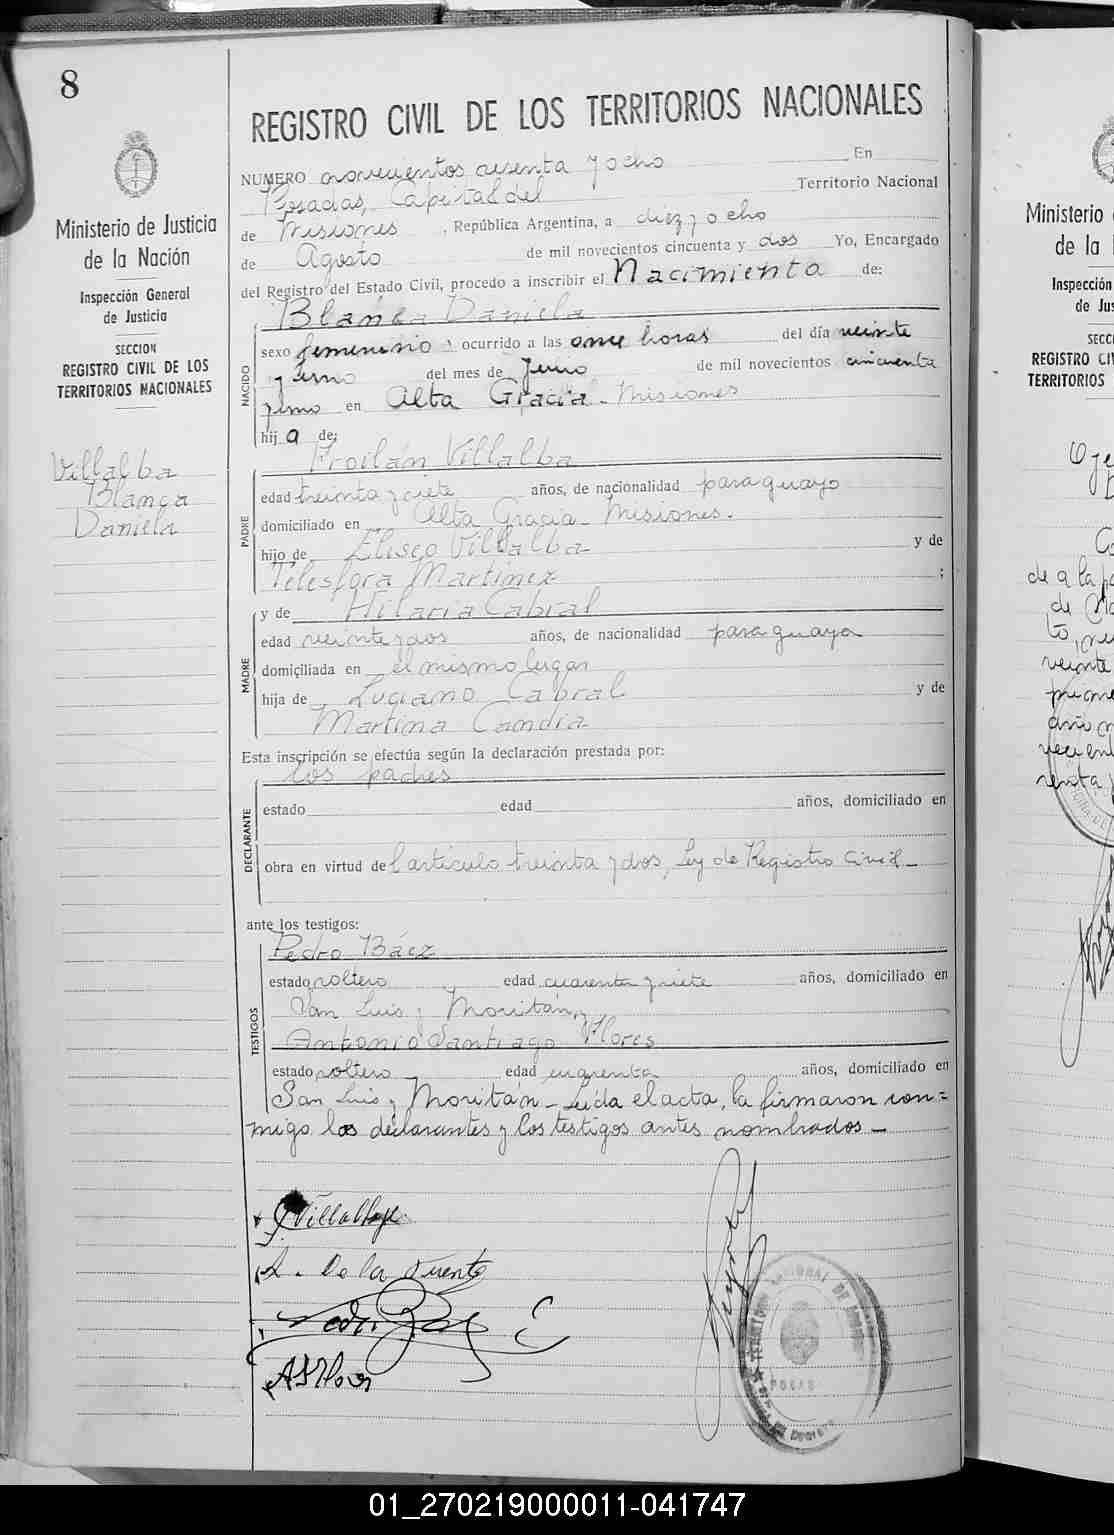 8
Ministerio de Justicia
de la Nación
Inspección General
de Justicia
SECCION
REGISTRO CIVIL DE LOS
TERRITORIOS NACIONALES
Villalba
Blanca
Daniela
REGISTRO CIVIL DE LOS TERRITORIOS NACIONALES
NUMERO novecientos cuarenta y ocho En
Posadas, Capital del Territorio Nacional
de Misiones, República Argentina, a diez y ocho
de Agosto de mil novecientos cincuenta y dos Yo, Encargado
del Registro del Estado Civil, procedo a inscribir el Nacimiento de:
Blanca Daniela
NACIDO
sexo femenino ocurrido a las once horas del día veinte
y uno del mes de Junio de mil novecientos cincuenta
y uno en Alta Gracia - Misiones
hij a de:
Froilán Villalba
PADRE
edad treinta y siete años, de nacionalidad paraguayo
domiciliado en Alta Gracia - Misiones.
hijo de Eliseo Villalba y de
Telesfora Martinez ;
y de Hilaria Cabral
MADRE
edad veinte y dos años, de nacionalidad paraguaya
domiciliada en el mismo lugar
hija de Luciano Cabral y de
Martina Candia
Esta inscripción se efectúa según la declaración prestada por:
los padres
DECLARANTE
estado edad años, domiciliado en
obra en virtud del artículo treinta y dos, Ley de Registro Civil -
ante los testigos:
Pedro Báez
TESTIGOS
estado soltero edad cuarenta y siete años, domiciliado en
San Luis y Moritán,
Antonio Santiago Flores
estado soltero edad cuarenta años, domiciliado en
San Luis y Moritán - Leída el acta, la firmaron con=
migo los declarantes y los testigos antes nombrados -
A. De la Fuente
A S Flores
TERRITORIO NACIONAL DE MISIONES
POSADAS
Ministerio
de la
Inspección
de Jus
SECC
REGISTRO CI
TERRITORIOS
de a la
de
veinte
prime
año
01_270219000011-041747